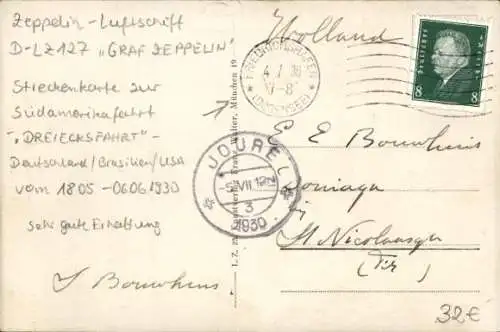 Zeppelin - Luftschiff
D-LZ127 „GRAF ZEPPELIN"
Streckenkarte zur
Südamerikafahrt
-„DREIECKSFAHRT"-
Deutschland/Brasilien/USA
vom 18.05-06.06.1930
sehr gute Erhaltung
S Bouwhuis
Holland
FRIEDRICHSHAFEN
(BODENSEE)
Deutsches Reich
8 8
JOURE
5 VII 12
3
1930
E E Bouwhuis
bij
St Nicolaasga
(Fr)
32€